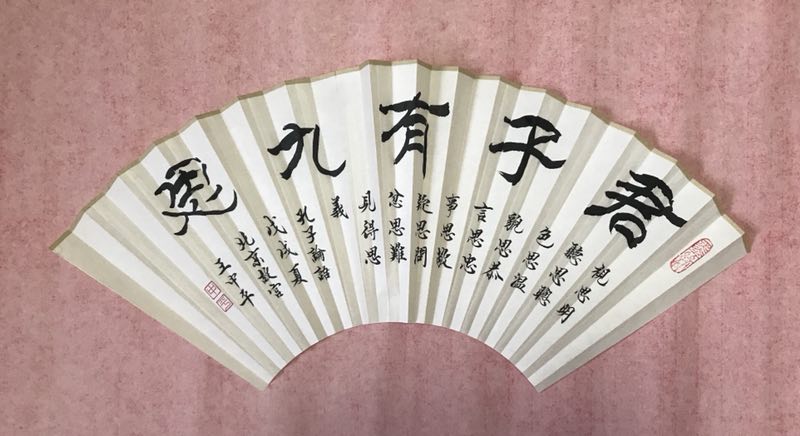 君子有九思
視思明
聽思聰
色思溫
貌思恭
言思忠
事思敬
疑思問
忿思難
見得思
義
孔子論語
戊戌夏
北京故宮
王中平